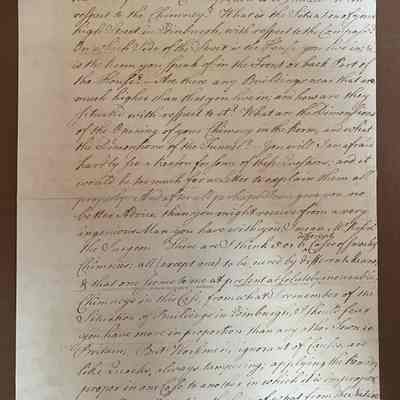 respect to the Chimney? What is the Situation of your
high Street in Edinburgh, with respect to the Compass?
On which Side of the Street is the House you live in; &
is the Room you speak of in the Front or back Part of
the House?— Are there any Buildings near that are
much higher than that you live in; and how are they
situated with respect to it? What are the Dimensions
of the Opening of your Chimney in the Room, and what
the Dimensions of the Funnel?— You will I am afraid
hardly see a reason for some of these Questions, and it
would be too much for a Letter to explain them all
properly. And after all perhaps I can give you no
better Advice than you might receive from a very
ingenious Man you have with you
the Surgeon. There are I think 5 or 6 different Cases of Smoaky
Chimneys; all (except one) to be cured by different means,
& that one seems to me at present absolutely incurable.
Chimneys in this Case, from what I remember of the
Situation of Buildings in Edinburgh, I should fear
you have more in proportion than any other Town in
Britain. But Workmen, ignorant of Causes, are
like Quacks, always tampering; applying the Remedy
proper in one Case to another, in which it is improper